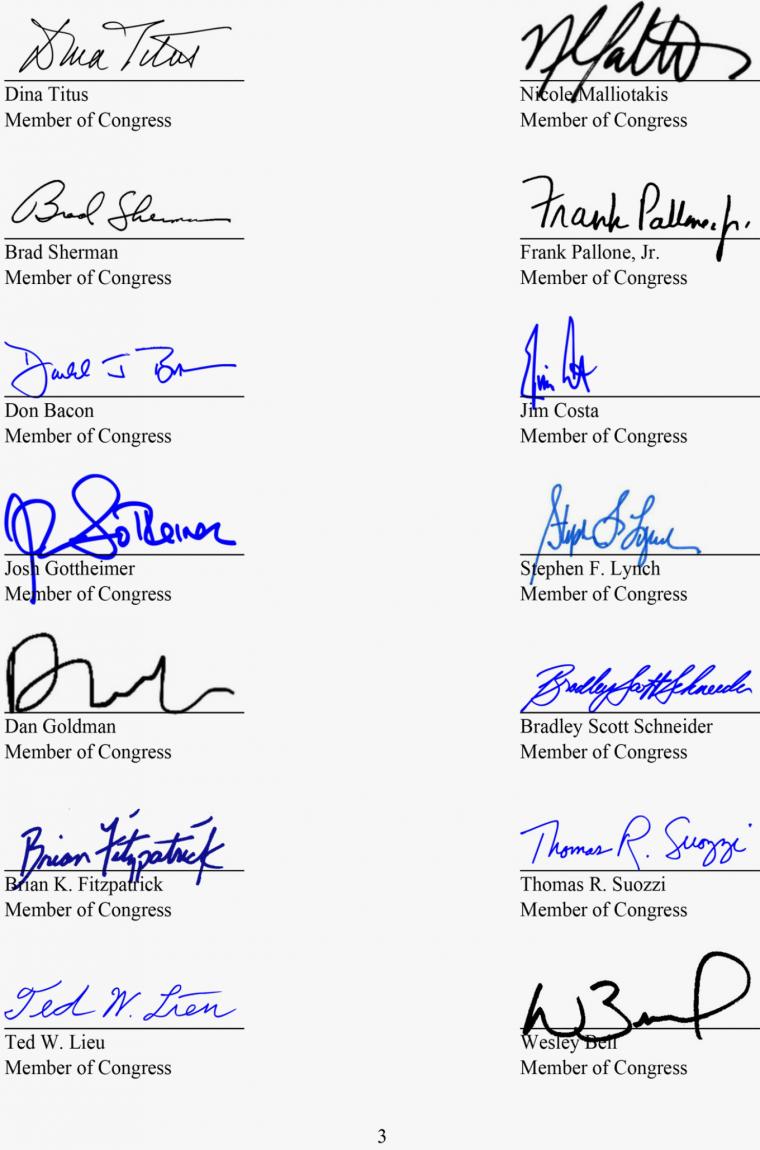 Dina Titus
Dina Titus
Member of Congress
Nicole Malliotakis
Member of Congress
Brad Sherman
Brad Sherman
Member of Congress
Frank Pallone, Jr.
Frank Pallone, Jr.
Member of Congress
Don Bacon
Member of Congress
Jim Costa
Member of Congress
Josh Gottheimer
Member of Congress
Stephen F. Lynch
Member of Congress
Dan Goldman
Member of Congress
Bradley Scott Schneider
Bradley Scott Schneider
Member of Congress
Brian Fitzpatrick
Brian K. Fitzpatrick
Member of Congress
Thomas R. Suozzi
Thomas R. Suozzi
Member of Congress
Ted W. Lieu
Ted W. Lieu
Member of Congress
Wesley Bell
Member of Congress
3